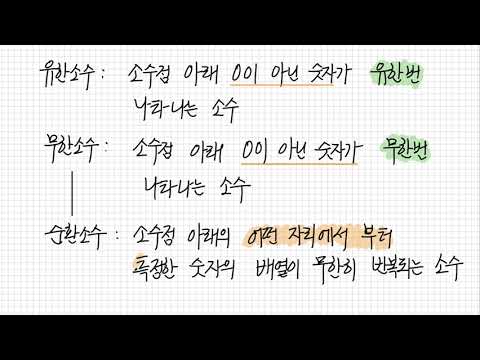 유한소수 : 소수점 아래 0이 아닌 숫자가 유한번
나타나는 소수
무한소수 : 소수점 아래 0이 아닌 숫자가 무한번
나타나는 소수
순환소수 : 소수점 아래의 어떤 자리에서 부터
특정한 숫자의 배열이 무한히 반복되는 소수